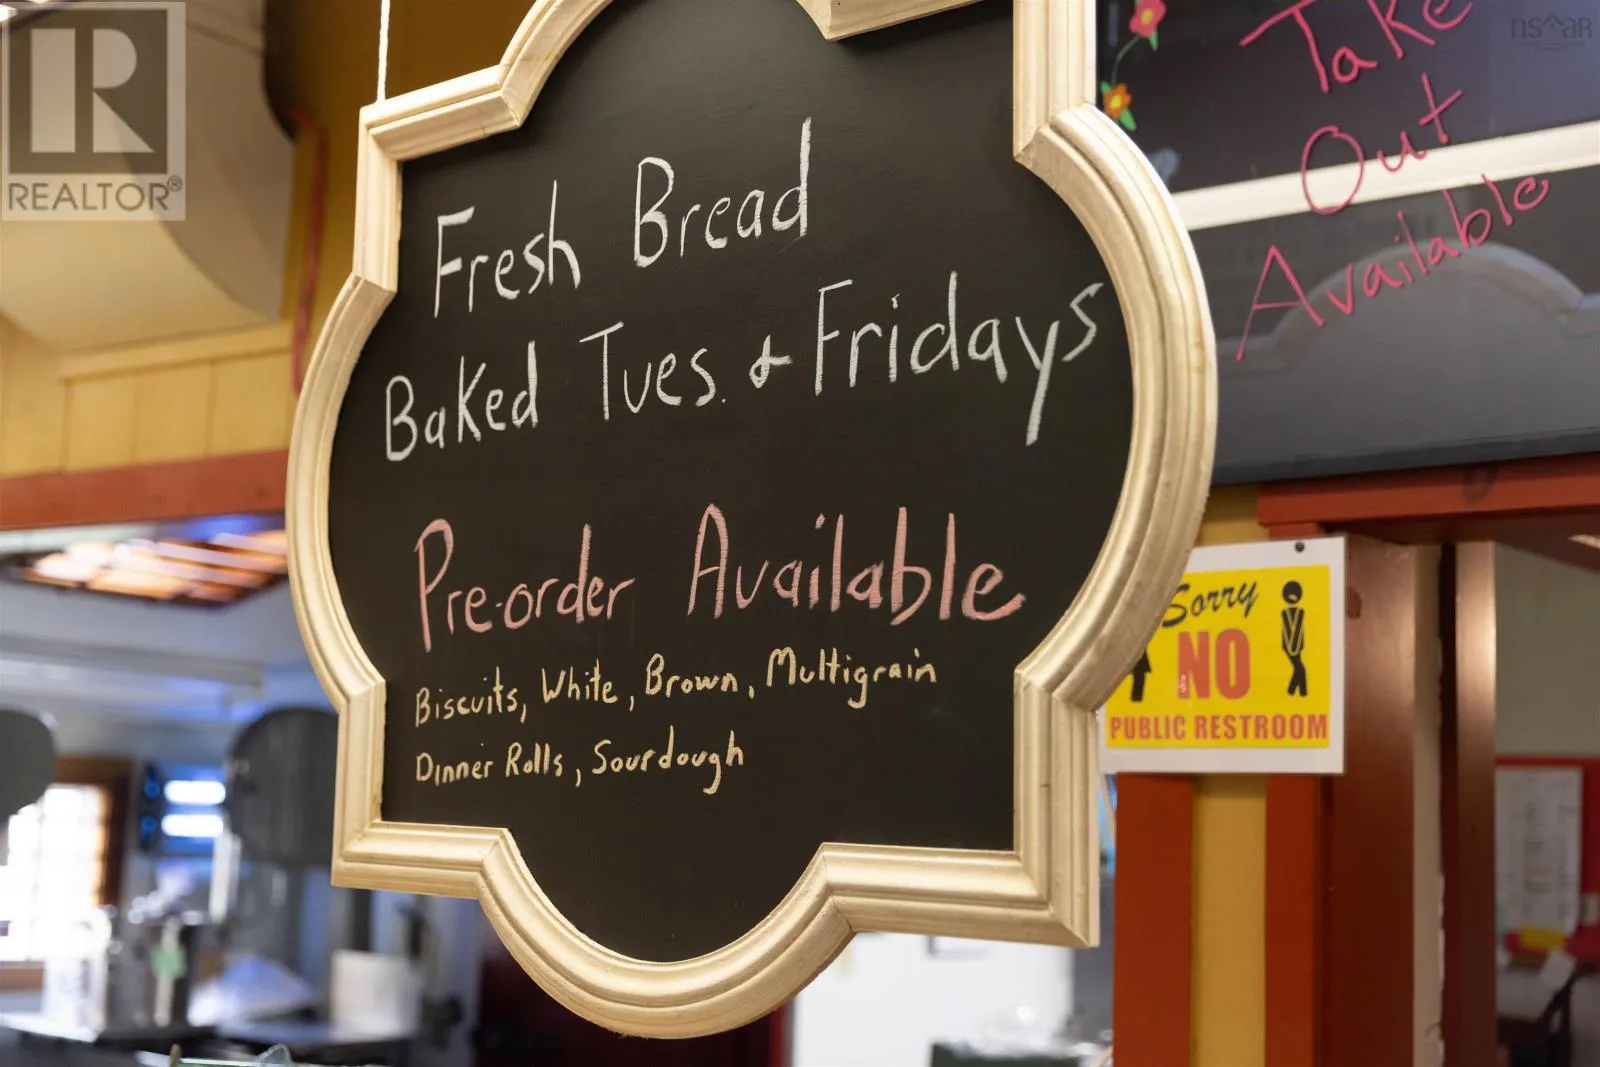 REALTOR®
nsar
Take
Out
Available
Fresh Bread
Baked Tues. & Fridays
Pre-order Available
Biscuits, White, Brown, Multigrain
Dinner Rolls, Sourdough
Sorry
NO
PUBLIC RESTROOM